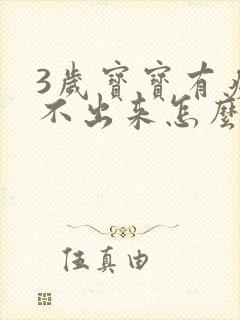 3歲寶寶有
不出来怎麼
伍真由